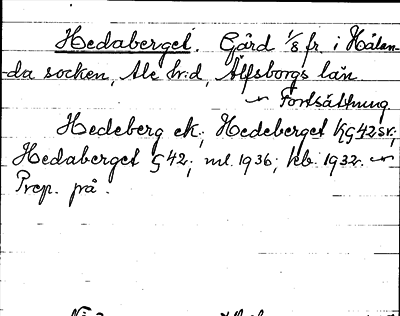 Hedaberget. Gård 1/8 fr. i Hålan-
da socken, Ale h:d, Älfsborgs län
~ Fortsättning
Hedeberg ek.; Hedeberget KG42sv;
Hedaberget G42; ml. 1936; kb. 1932. ~
Prep. på.